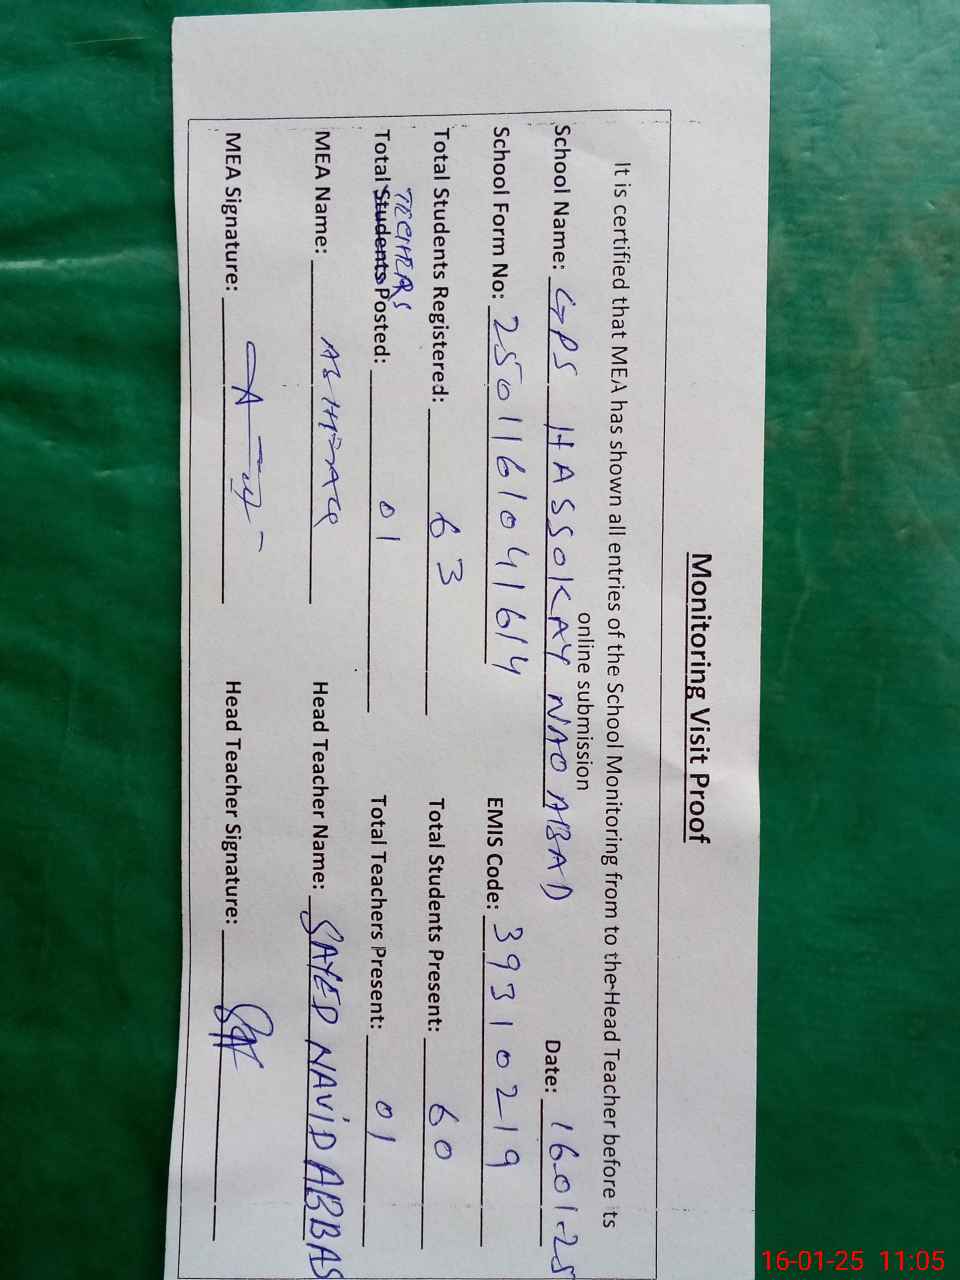 Monitoring Visit Proof
It is certified that MEA has shown all entries of the School Monitoring from to the Head Teacher before its
online submission
School Name: GPS HASSOKAY NAO ABAD Date: 16-01-25
School Form No: 2501161041614 EMIS Code: 39310219
Total Students Registered: 63 Total Students Present: 60
TECHERS
Total Students Posted: 01 Total Teachers Present: 01
MEA Name: Head Teacher Name: SAYED NAVID ABBAS
MEA Signature: Head Teacher Signature:
16-01-25 11:05